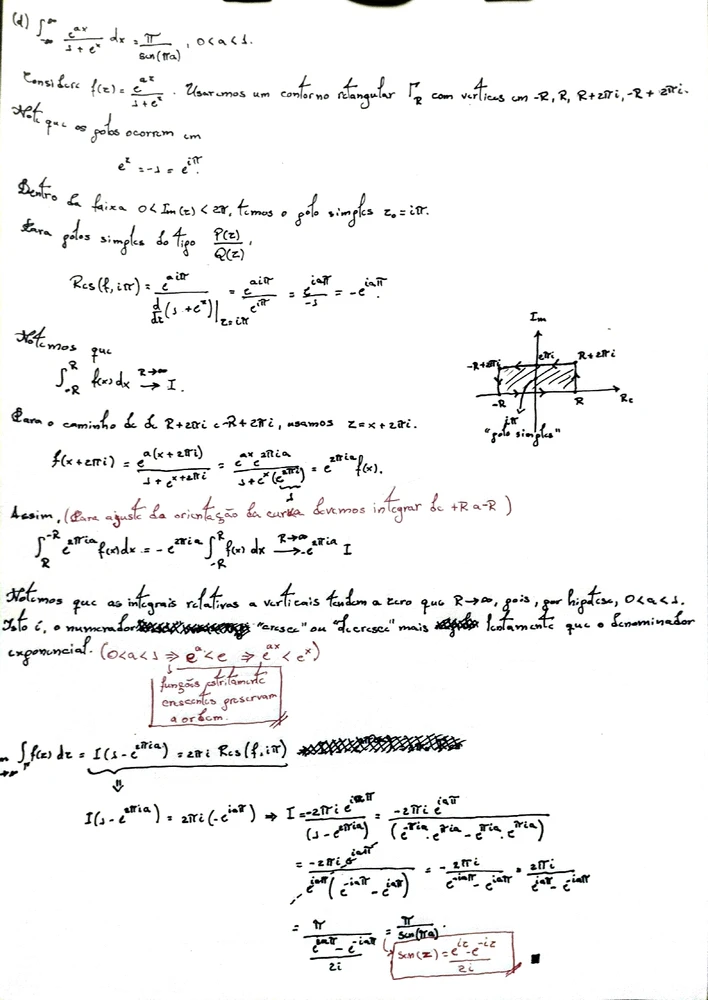 (d) ∫_{-∞}^{∞} e^{ax}/(1 + e^x) dx = π/sen(πa), 0<a<1.
Considere f(z) = e^{az}/(1+e^z). Usaremos um contorno retangular Γ_R com vertices em -R, R, R+2πi, -R + 2πi.
Note que os polos ocorrem em
e^z = -1 = e^{iπ}.
Dentro da faixa 0<Im(z)<2π, temos o polo simples z_0 = iπ.
Para polos simples do tipo P(z)/Q(z),
Res(f, iπ) = e^{aiπ}/(d/dz(1 + e^z)|_{z=iπ}) = e^{aiπ}/e^{iπ} = e^{iaπ}/-1 = -e^{iaπ}.
Notemos que
∫_{-R}^{R} f(x) dx →^{R→∞} I.
Im
-R+2πi 2πi R+2πi
-R R Re
iπ
"polo simples"
Para o caminho de de R+2πi e -R+2πi, usamos z=x+2πi.
f(x+2πi) = e^{a(x+2πi)}/(1 + e^{x+2πi}) = e^{ax} e^{2πia}/(1+e^x(e^{2πi})) = e^{2πia} f(x).
1
Assim, (Para ajuste da orientação da curva devemos integrar de +R a -R)
∫_{R}^{-R} e^{2πia} f(x)dx = -e^{2πia} ∫_{-R}^{R} f(x) dx →^{R→∞} -e^{2πia} I
Notemos que as integrais relativas a verticais tendem a zero que R→∞, pois, por hipótese, 0<a<1.
Isto é, o numerador "cresce" ou "decresce" mais lentamente que o denominador
exponencial. (0<a<1 ⇒ e^a < e ⇒ e^{ax} < e^x)
funções estritamente
crescentes preservam
a ordem.
∫_Γ f(z) dz = I(1-e^{2πia}) = 2πi Res(f, iπ)
⇓
I(1-e^{2πia}) = 2πi(-e^{iaπ}) ⇒ I = -2πi e^{iaπ}/(1-e^{2πia}) = -2πi e^{iaπ}/(e^{-πia}·e^{πia} - e^{πia}·e^{πia})
= -2πi e^{iaπ}/(e^{iaπ}(e^{-iaπ} - e^{iaπ})) = -2πi/(e^{-iaπ} - e^{iaπ}) = 2πi/(e^{iaπ} - e^{-iaπ})
= π/((e^{iaπ} - e^{-iaπ})/2i) = π/sen(πa).
sen(z) = (e^{iz} - e^{-iz})/2i ■